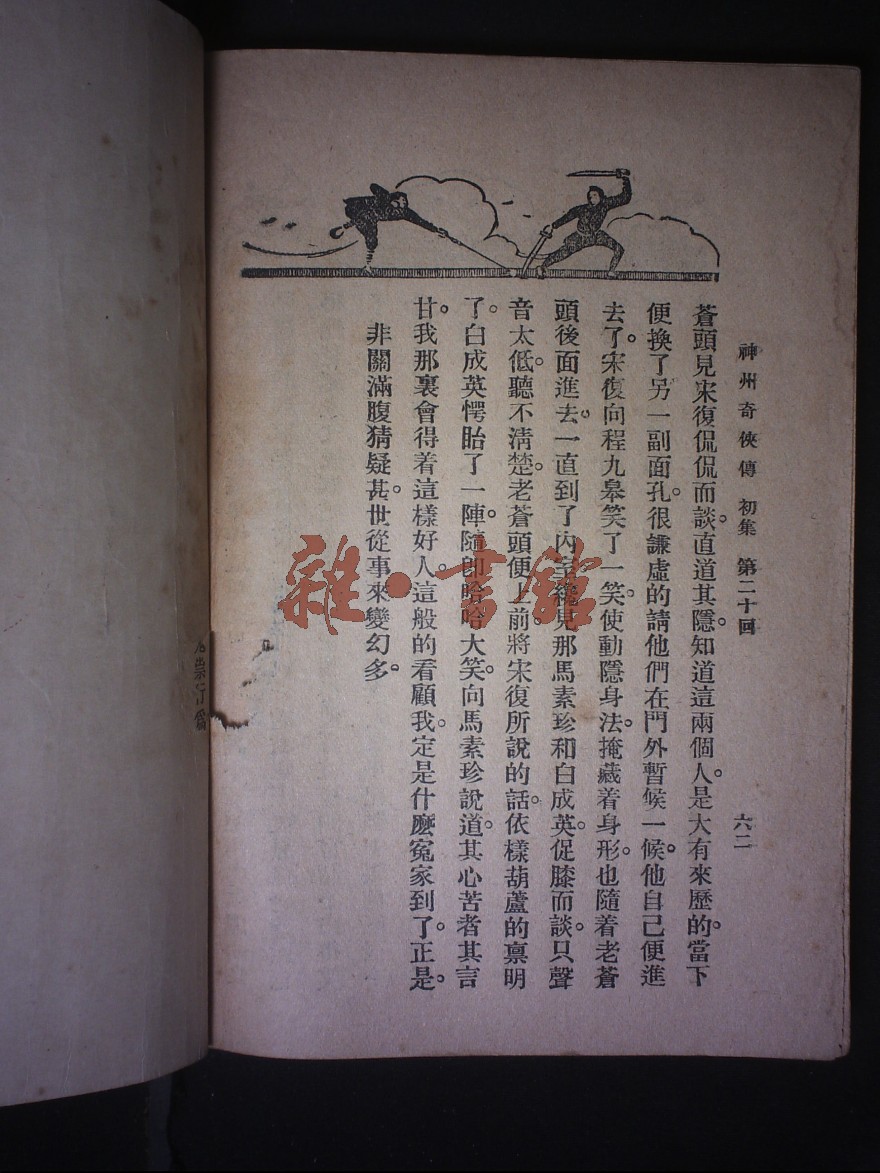 神州奇俠傳 初集 第二十回 六二
蒼頭見宋復侃侃而談。直道其隱。知道這兩個人。是大有來歷的。當下
便換了另一副面孔。很謙虛的請他們在門外暫候一候。他自己便進
去了。宋復向程九皋笑了一笑。使動隱身法。掩藏着身形。也隨着老蒼
頭後面進去。一直到了內室。纔見那馬素珍和白成英。促膝而談。只聲
音太低。聽不清楚。老蒼頭便上前。將宋復所說的話。依樣葫蘆的禀明
了。白成英愕眙了一陣。隨卽哈哈大笑。向馬素珍說道。其心苦者其言
甘。我那裏會得着這樣好人。這般的看顧我。定是什麽寃家到了。正是。
非關滿腹猜疑甚。世從事來變幻多。
雜·書館